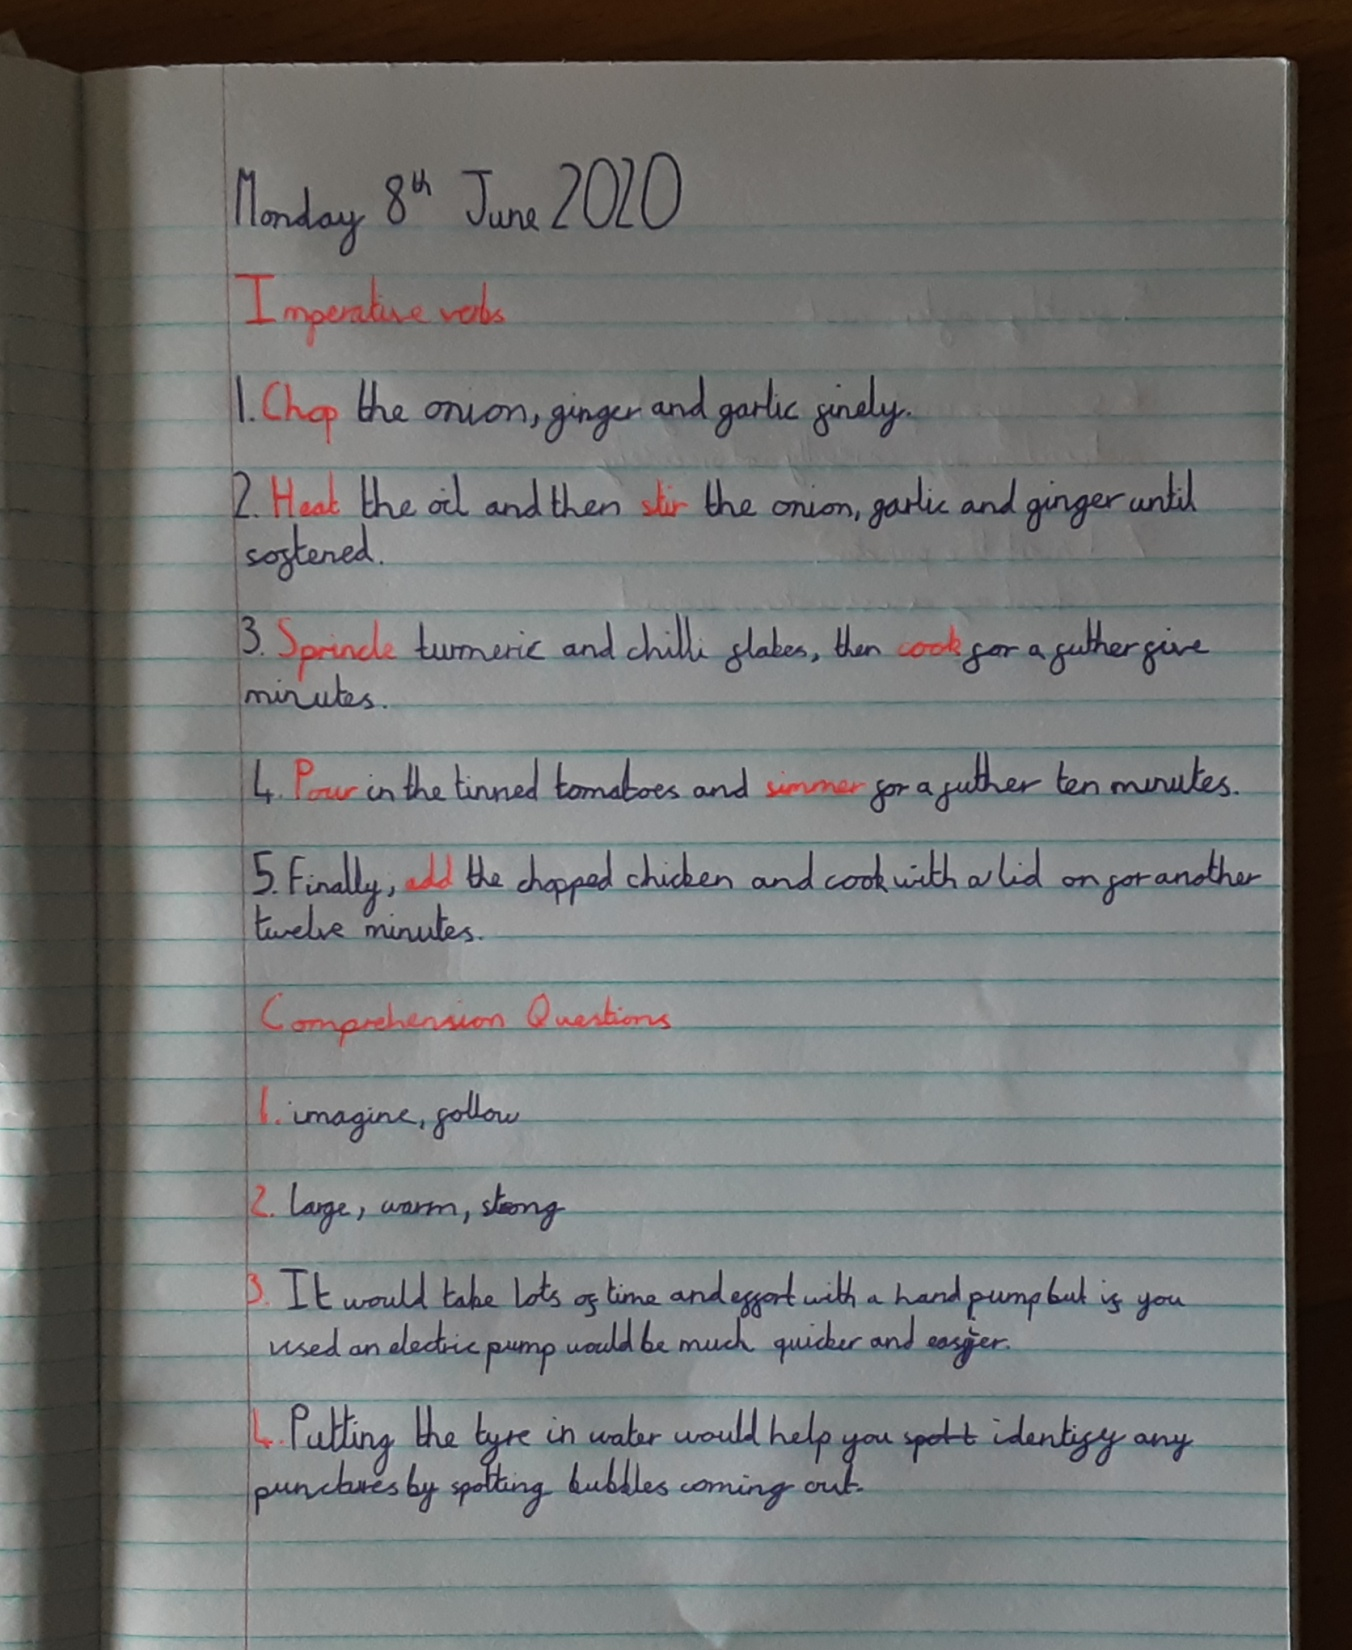 Monday 8th June 2020
Imperative verbs
1. Chop the onion, ginger and garlic finely.
2. Heat the oil and then stir the onion, garlic and ginger until
softened.
3. Sprincle turmeric and chilli flakes, then cook for a futher five
minutes.
4. Pour in the tinned tomatoes and simmer for a futher ten minutes.
5. Finally, add the chopped chicken and cook with a lid on for another
twelve minutes.
Comprehension Questions
1. imagine, follow
2. large, warm, strong
3. It would take lots of time and effort with a hand pump but if you
used an electric pump would be much quicker and easier.
4. Putting the tyre in water would help you spott identify any
punctures by spotting bubbles coming out.